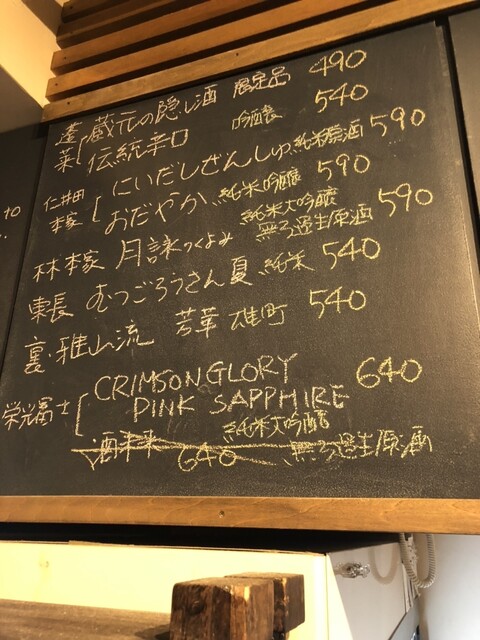 蓬莱 蔵元の隠し酒 限定品 490
伝統辛口 吟醸 540
仁井田本家 にいだしぜんしゅ 純米原酒 590
おだやか 純米吟醸 590
林本家 月詠つくよみ 純米大吟醸 無ろ過生原酒 590
東長 むつごろうさん夏 純米 540
裏・雅山流 芳華 雄町 540
栄光冨士 CRIMSON GLORY 640
PINK SAPPHIRE
純米大吟醸
酒未来 640 無ろ過生原酒